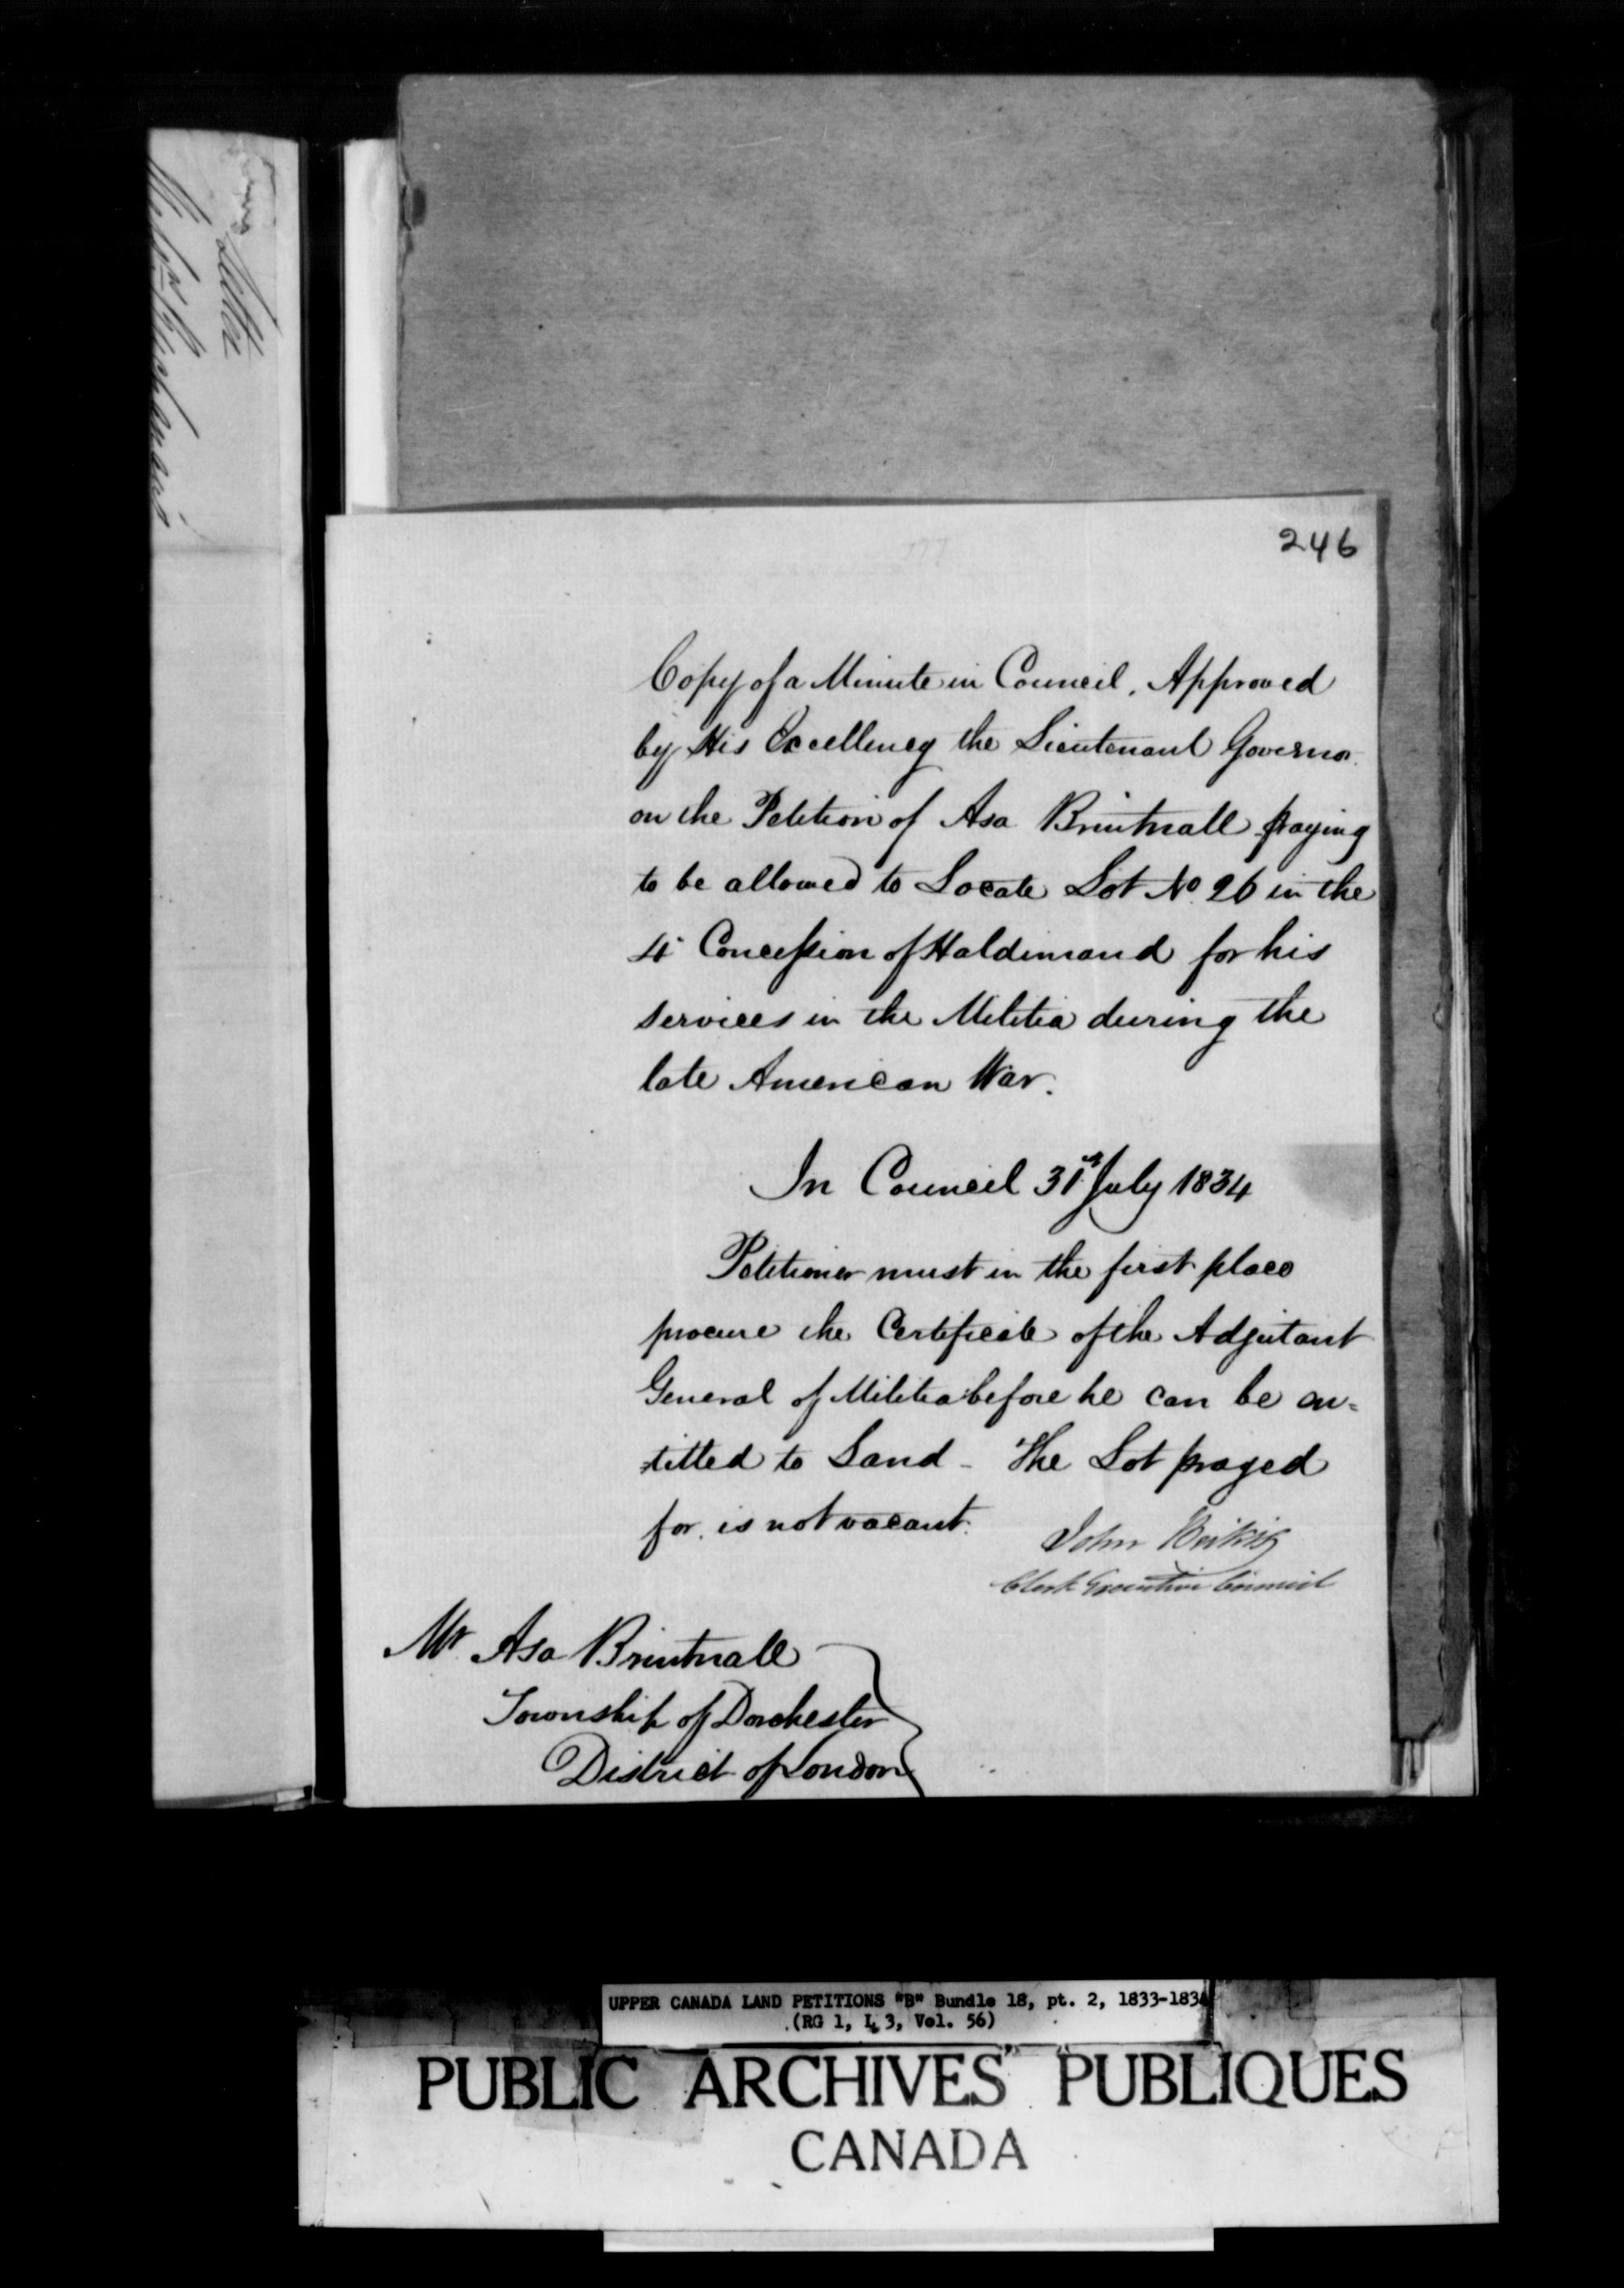 246
Copy of a Minute in Council, Approved
by His Excellency the Lieutenant Governor
on the Petition of Asa Brintnall praying
to be allowed to Locate Lot No. 26 in the
4 Concession of Haldimand for his
services in the Militia during the
late American War.
In Council 31st July 1834
Petitioner must in the first place
procure the Certificate of the Adjutant
General of Militia before he can be en=
=titled to Land - The Lot prayed
for, is not vacant.
John Beikie
Clerk Executive Council
Mr Asa Brintnall
Township of Dorchester
District of London
Letter
UPPER CANADA LAND PETITIONS "B" Bundle 18, pt. 2, 1833-1834
(RG 1, L 3, Vol. 56)
PUBLIC ARCHIVES PUBLIQUES
CANADA